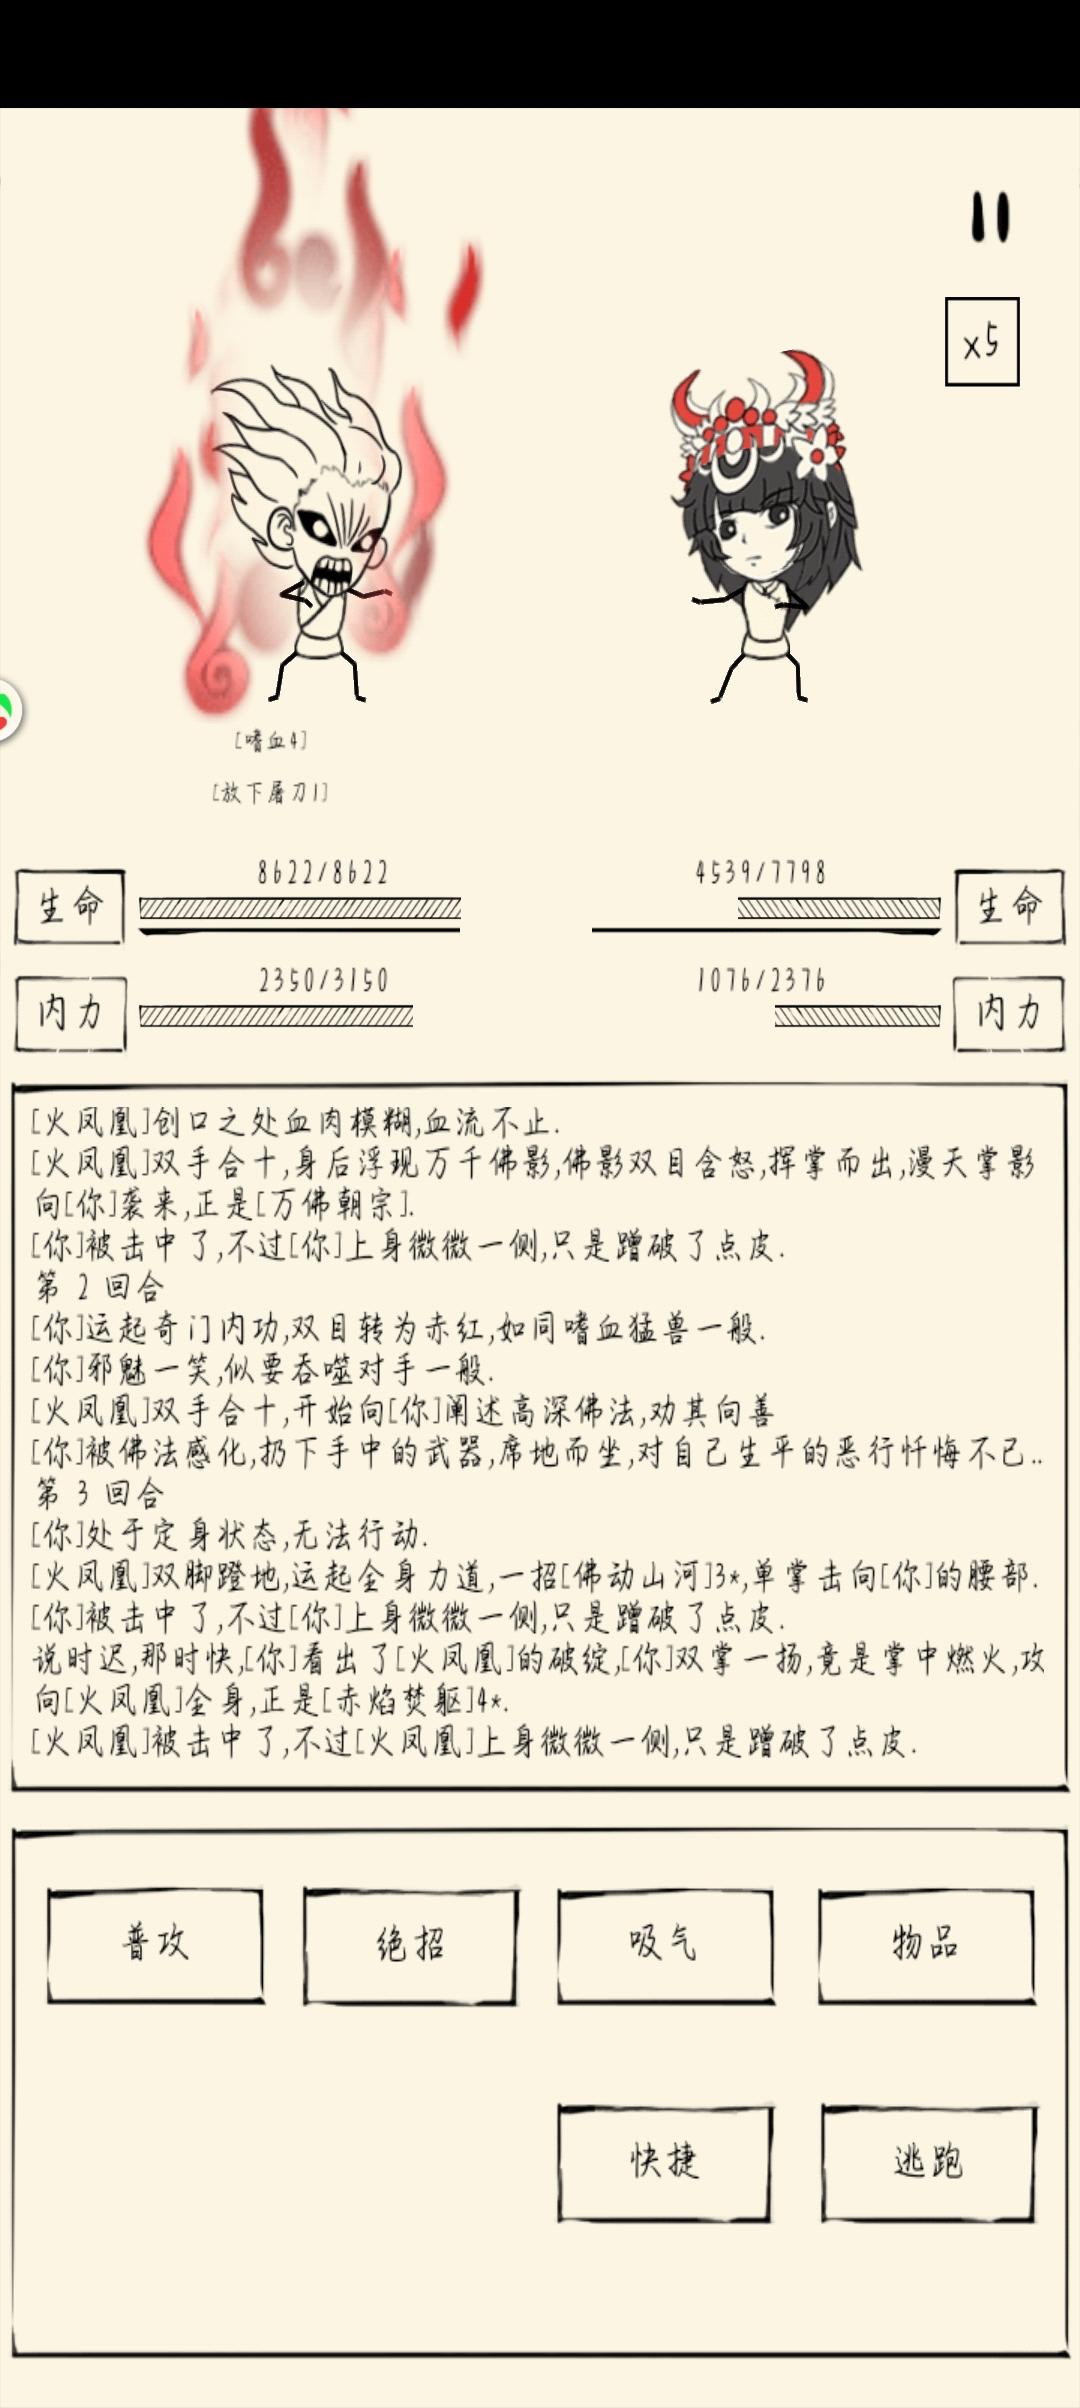 x5
[嗜血4]
[放下屠刀1]
8622/8622
4539/7798
生命
生命
2350/3150
1076/2376
内力
内力
[火凤凰]创口之处血肉模糊,血流不止.
[火凤凰]双手合十,身后浮现万千佛影,佛影双目含怒,挥掌而出,漫天掌影
向[你]袭来,正是[万佛朝宗].
[你]被击中了,不过[你]上身微微一侧,只是蹭破了点皮.
第 2 回合
[你]运起奇门内功,双目转为赤红,如同嗜血猛兽一般.
[你]邪魅一笑,似要吞噬对手一般.
[火凤凰]双手合十,开始向[你]阐述高深佛法,劝其向善
[你]被佛法感化,扔下手中的武器,席地而坐,对自己生平的恶行忏悔不已..
第 3 回合
[你]处于定身状态,无法行动.
[火凤凰]双脚蹬地,运起全身力道,一招[佛动山河]3*,单掌击向[你]的腰部.
[你]被击中了,不过[你]上身微微一侧,只是蹭破了点皮.
说时迟,那时快,[你]看出了[火凤凰]的破绽,[你]双掌一扬,竟是掌中燃火,攻
向[火凤凰]全身,正是[赤焰焚躯]4*.
[火凤凰]被击中了,不过[火凤凰]上身微微一侧,只是蹭破了点皮.
普攻
绝招
吸气
物品
快捷
逃跑